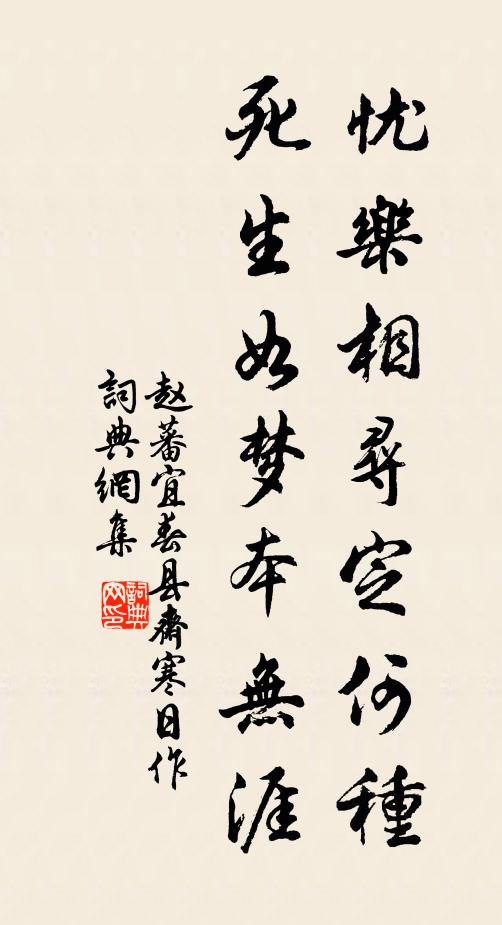 忧樂相尋定何種
死生如梦本無涯
赵蕃宜春县齋寒日作
詞典網集
詞典网印